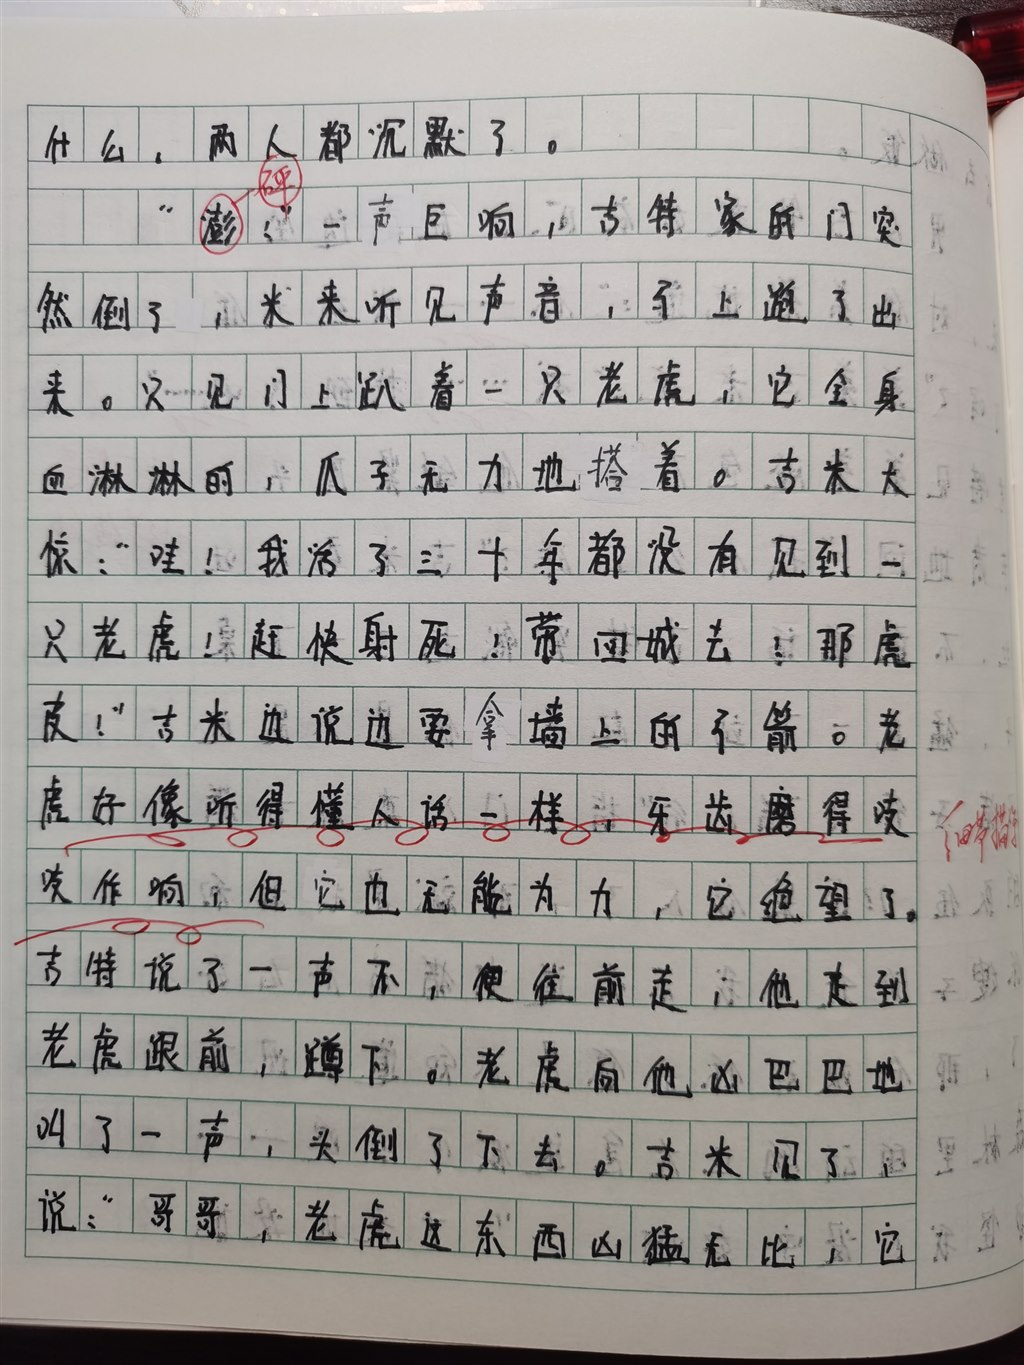 什么，两人都沉默了。
砰
“澎！”一声巨响，吉特家的门突
然倒了，米来听见声音，马上跑了出
来。只见门上趴着一只老虎，它全身
血淋淋的，爪子无力地搭着。吉米大
惊：“哇！我活了三十年都没有见到一
只老虎！赶快射死！带回城去！那虎
皮！”吉米边说边要拿墙上的弓箭。老
虎好像听得懂人话一样，牙齿磨得吱
吱作响，但它也无能为力，它绝望了。
细节描写
吉特说了一声不，便往前走，他走到
老虎跟前，蹲下。老虎向他凶巴巴地
叫了一声，头倒了下去。吉米见了，
说：“哥哥，老虎这东西凶猛无比，它